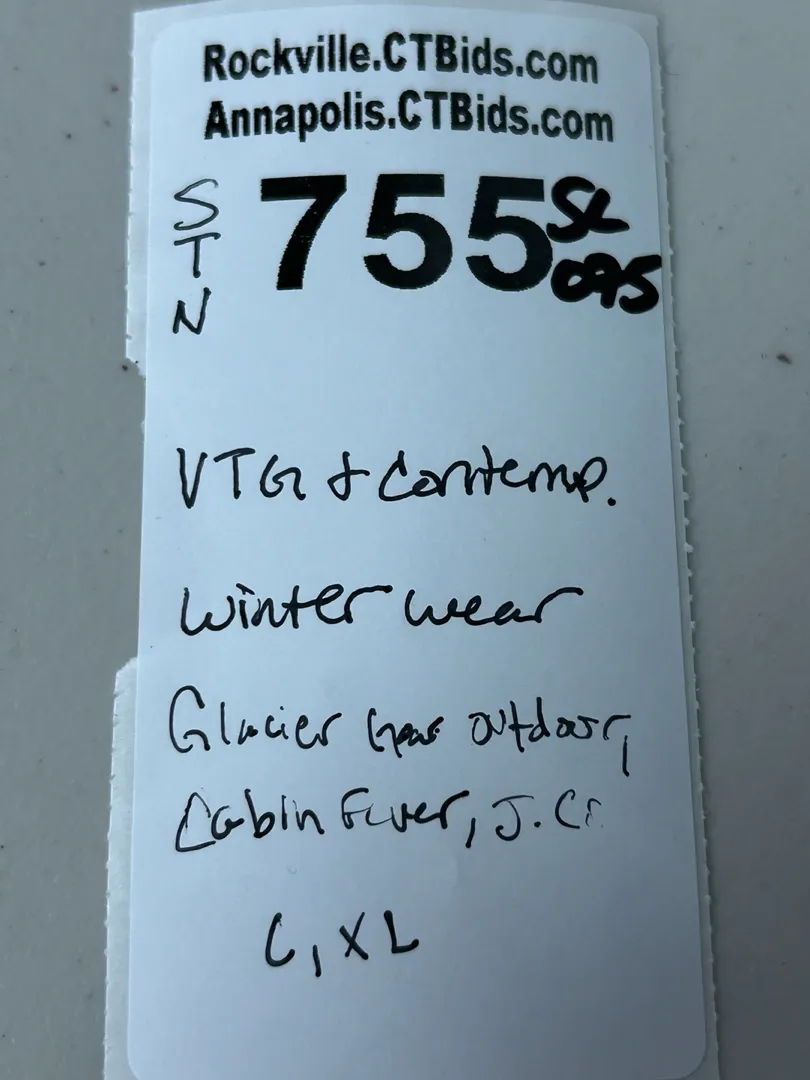 Rockville.CTBids.com
Annapolis.CTBids.com
STN 755 SL 095
VTG & Contemp.
Winter wear
Glacier Gear Outdoor,
Cabin Fever, J. Cr
L, XL